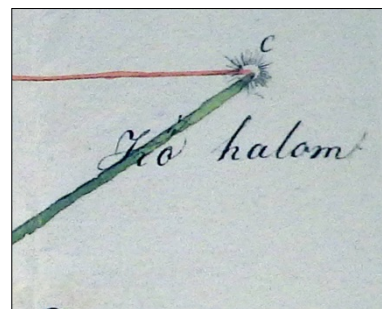 C
Kő halom